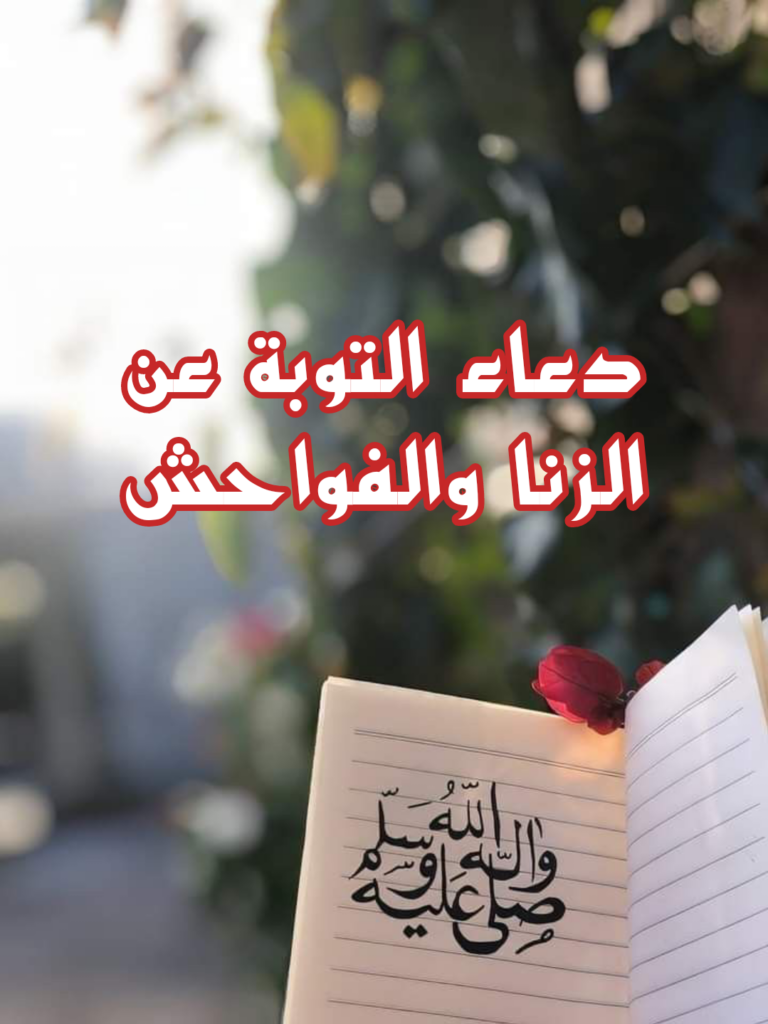 دعاء التوبة عن
الزنا والفواحش
صلى الله عليه
وآله وسلم